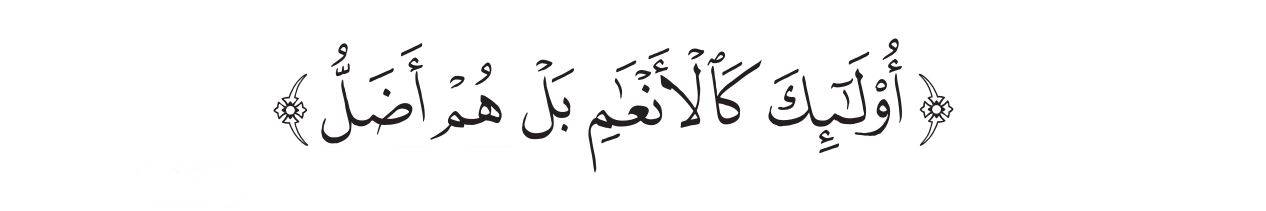 ﴿ أُو۟لَـٰٓئِكَ كَٱلْأَنْعَـٰمِ بَلْ هُمْ أَضَلُّ ﴾